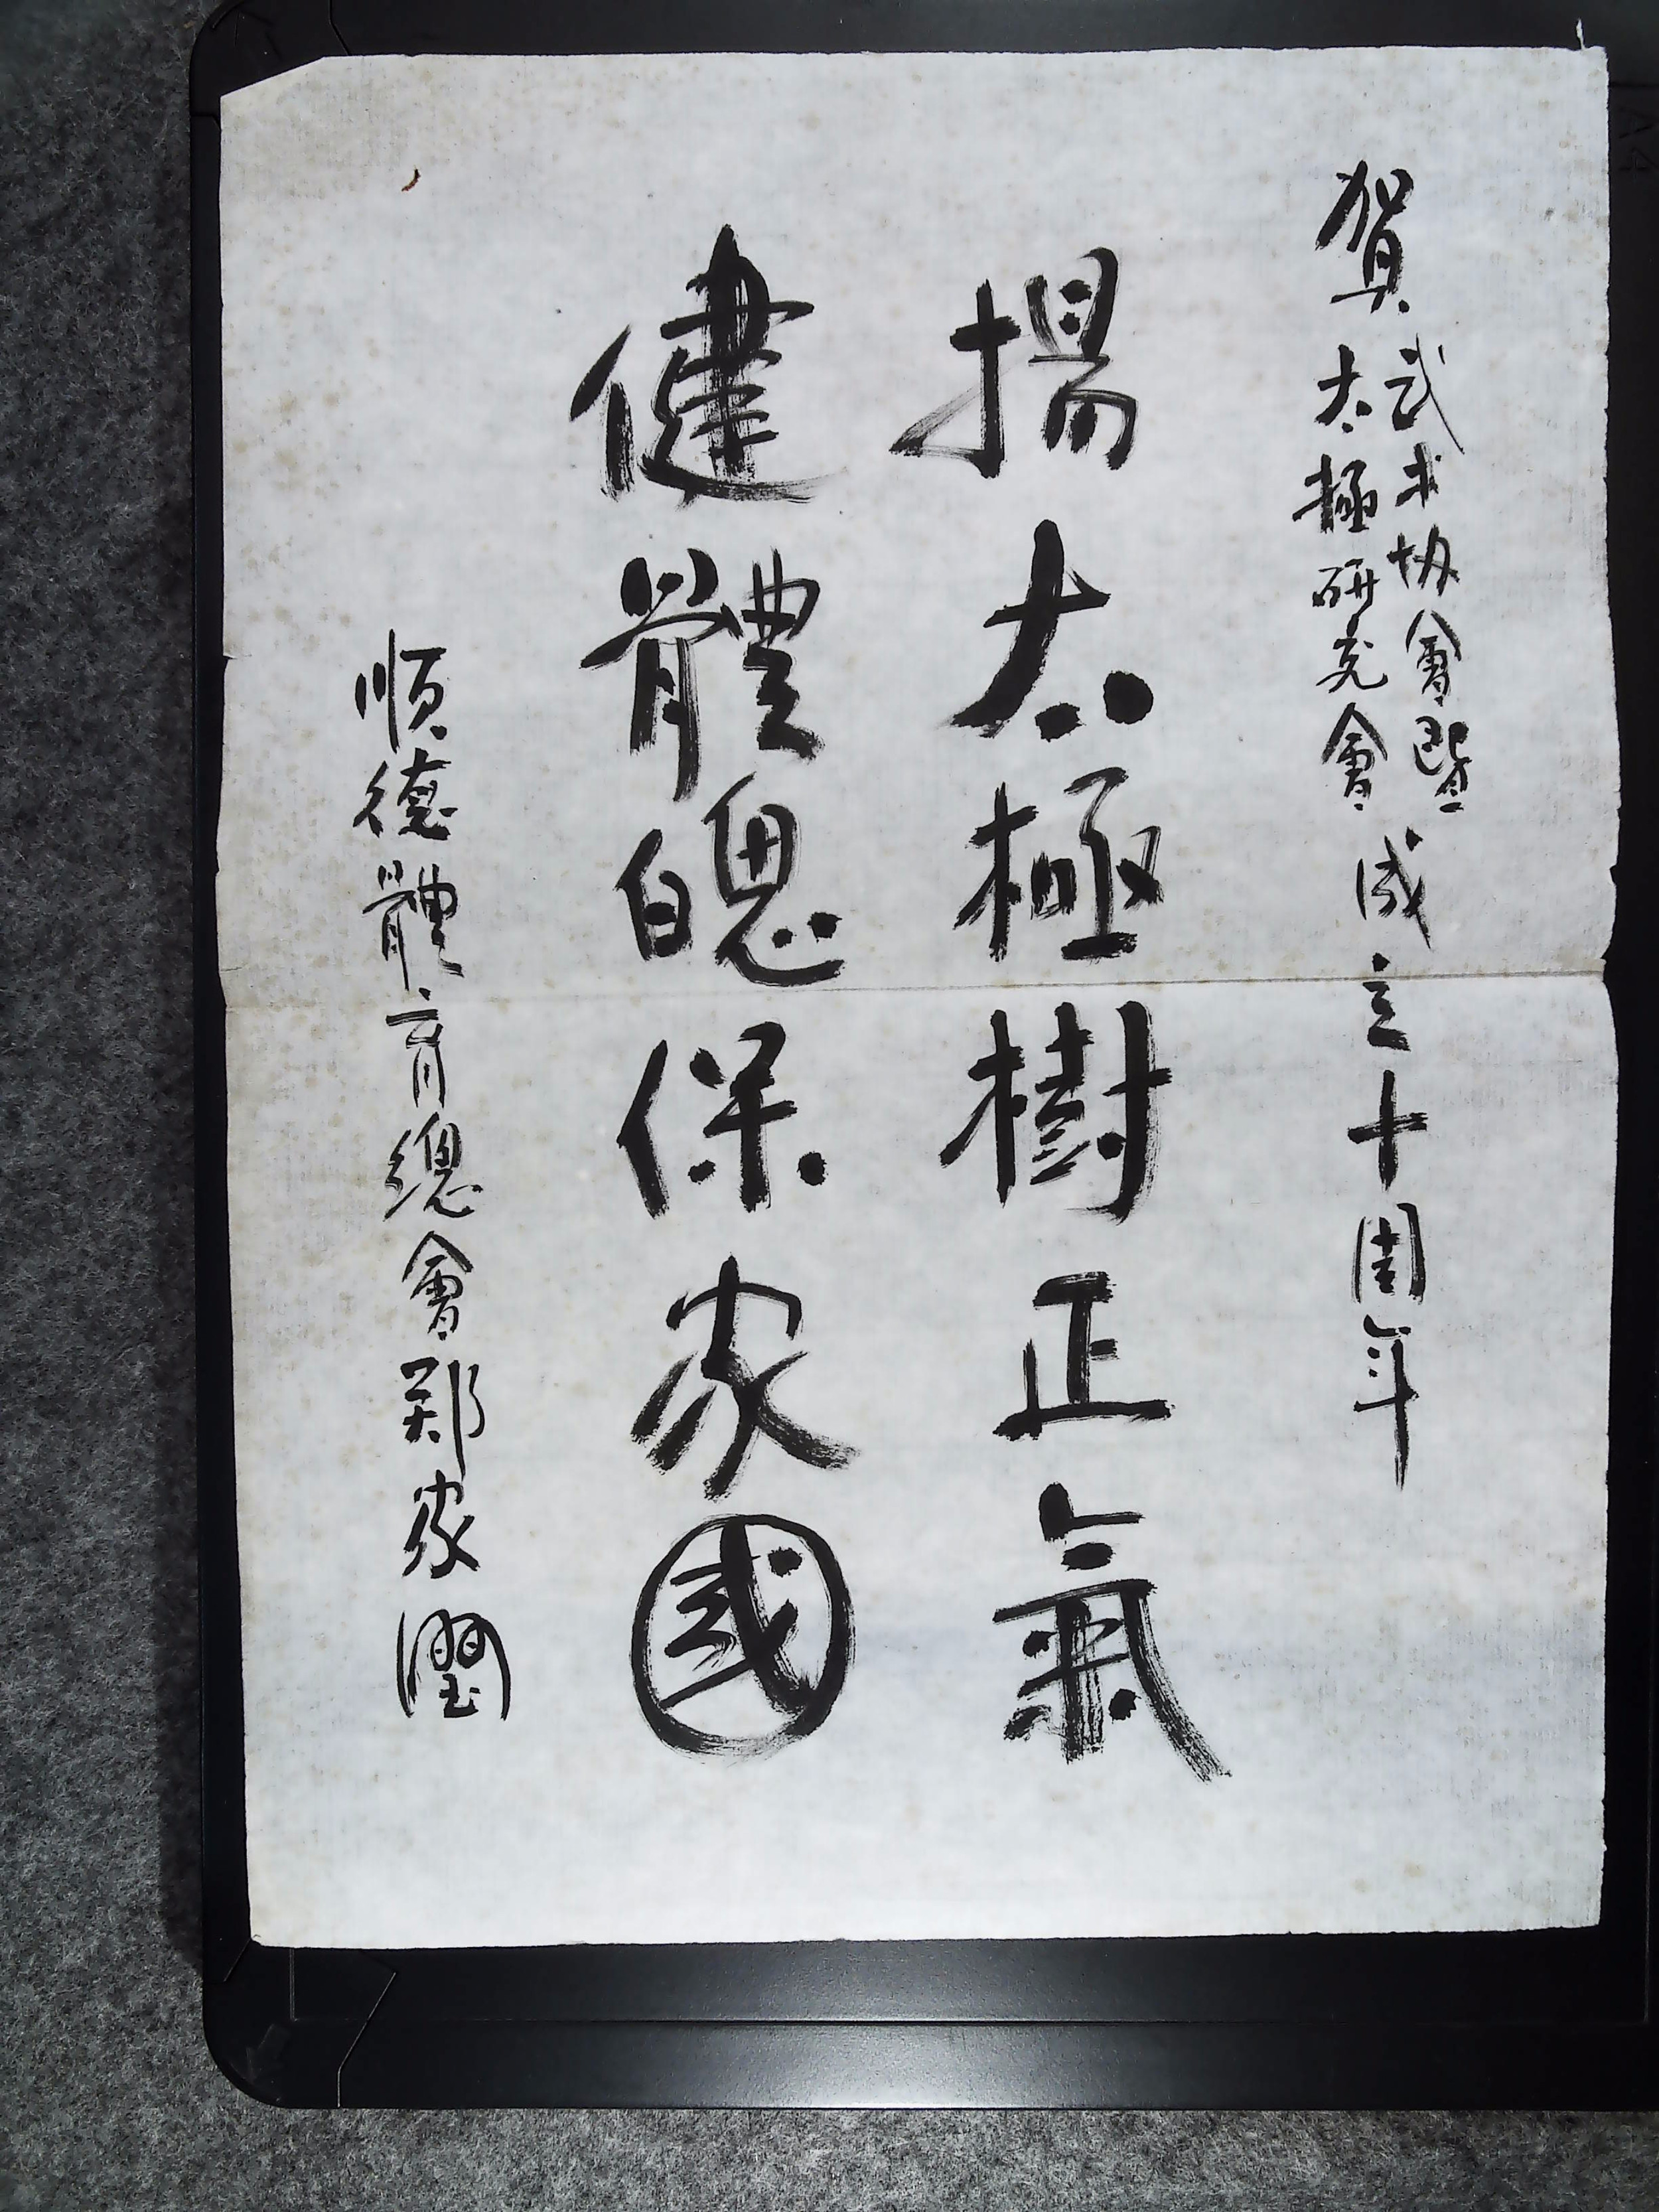 賀
武术协會暨
太極研究會
成立十周年
揚太極樹正氣
健體魄保家國
順德體育總會郑家潤